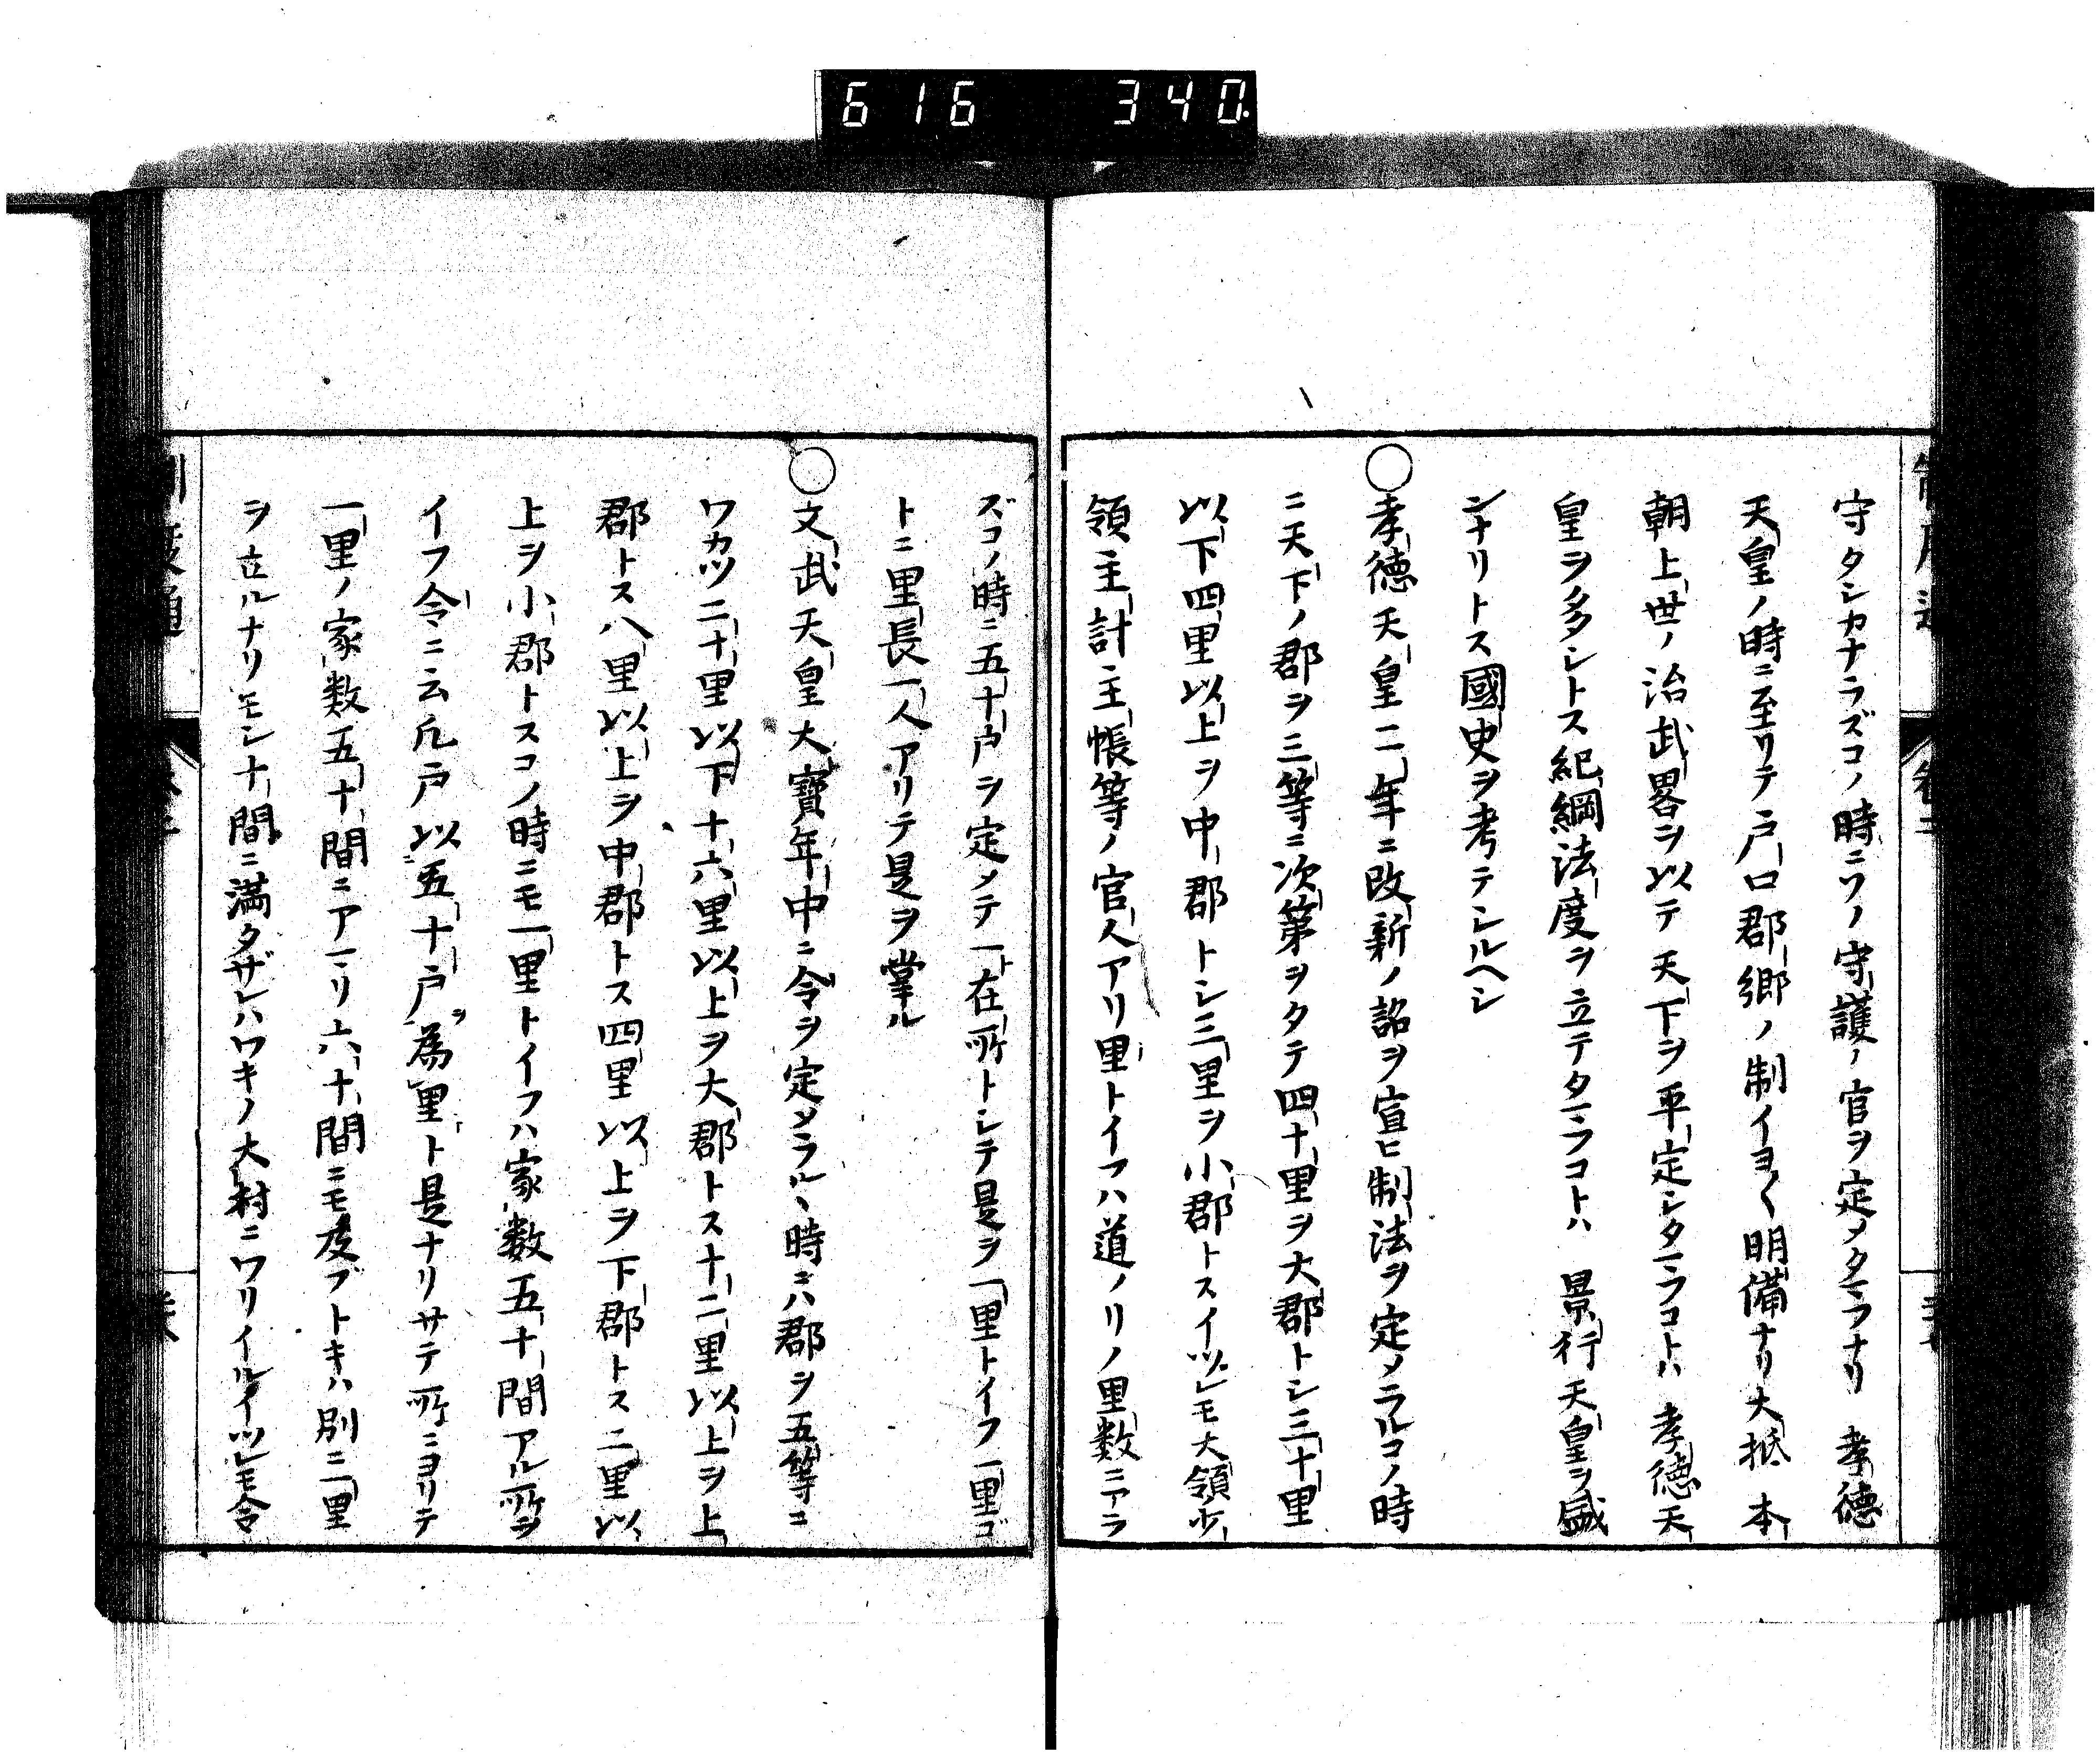 616 340
守タシカナラズコノ時ニソノ守護ノ官ヲ定メタマフナリ 孝徳
天皇ノ時ニ至リテ戸口郡郷ノ制イヨ〱明備ナリ大抵 本
朝上世ノ治武畧ヲ以テ天下ヲ平定シタマフコトハ 孝徳天
皇ヲ多シトス紀綱法度ヲ立テタマフコトハ 景行天皇ヲ盛
ンナリトス國史ヲ考テシルヘシ
○孝徳天皇二年ニ改新ノ詔ヲ宣ヒ制法ヲ定メラルコノ時
ニ天下ノ郡ヲ三等ニ次第ヲタテ四十里ヲ大郡トシ三十里
以下四里以上ヲ中郡トシ三里ヲ小郡トスイヅレモ大領少
領主計主帳等ノ官人アリ里トイフハ道ノリノ里数ニアラ
ズコノ時ニ五十戸ヲ定メテ一ト在所トシテ是ヲ一里トイフ一里ゴ
トニ里長一人アリテ是ヲ掌ル
○文武天皇大寶年中ニ令ヲ定メラルヽ時ニハ郡ヲ五等ニ
ワカツ二十里以下十六里以上ヲ大郡トス十二里以上ヲ上
郡トス八里以上ヲ中郡トス四里以上ヲ下郡トス二里以
上ヲ小郡トスコノ時ニモ一里トイフハ家数五十間アル所ヲ
イフ令ニ云凡戸以五十戸為里ト是ナリサテ所ニヨリテ
一里ノ家数五十間ニアマリ六十間ニモ及ブトキハ別ニ一里
ヲ立ルナリモシ十間ニ満タザレハワキノ大村ニワリイルイヅレモ令